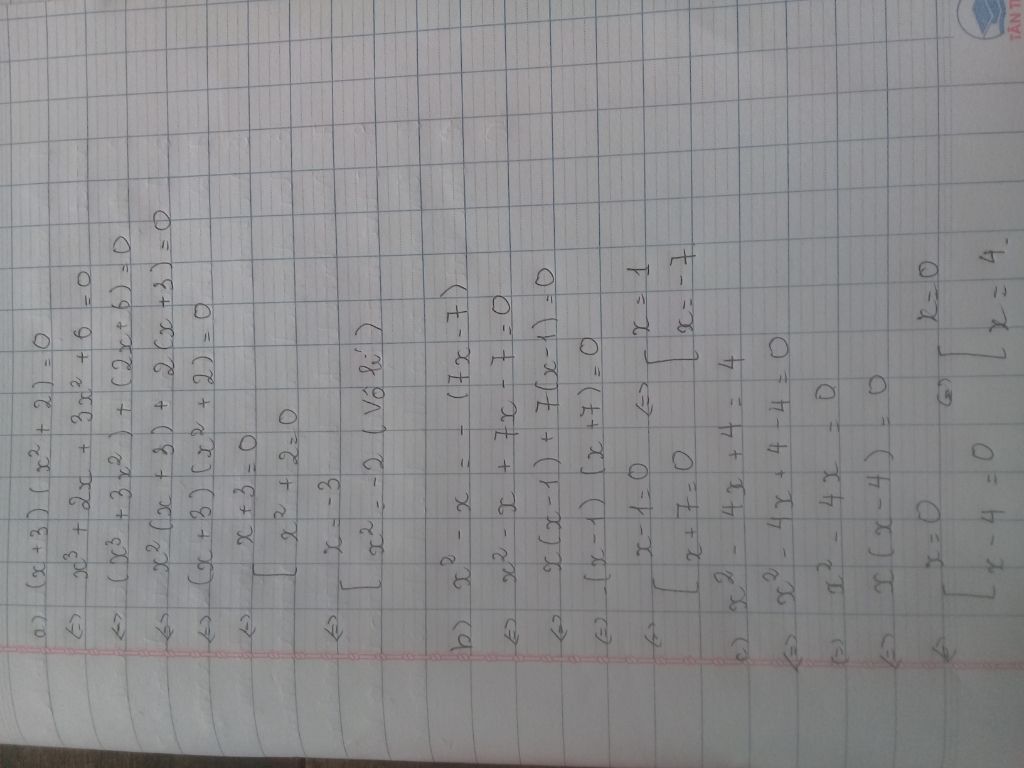 a) (x+3)(x²+2)=0
<=> x³ + 2x + 3x² + 6 = 0
<=> (x³ + 3x²) + (2x+6) = 0
<=> x²(x+3) + 2(x+3) = 0
<=> (x+3)(x²+2) = 0
<=> [ x+3=0
x²+2=0
<=> x=-3
[ x²=-2 (Vô lí)
b) x² - x = - (7x-7)
<=> x² - x + 7x - 7 = 0
<=> x(x-1) + 7(x-1) = 0
<=> (x-1)(x+7) = 0
<=> [ x-1=0 <=> [ x=1
x+7=0 x=-7
c) x² - 4x + 4 = 4
<=> x² - 4x + 4 - 4 = 0
<=> x² - 4x = 0
<=> x(x-4) = 0
<=> [ x=0 <=> [ x=0
x-4=0 x=4